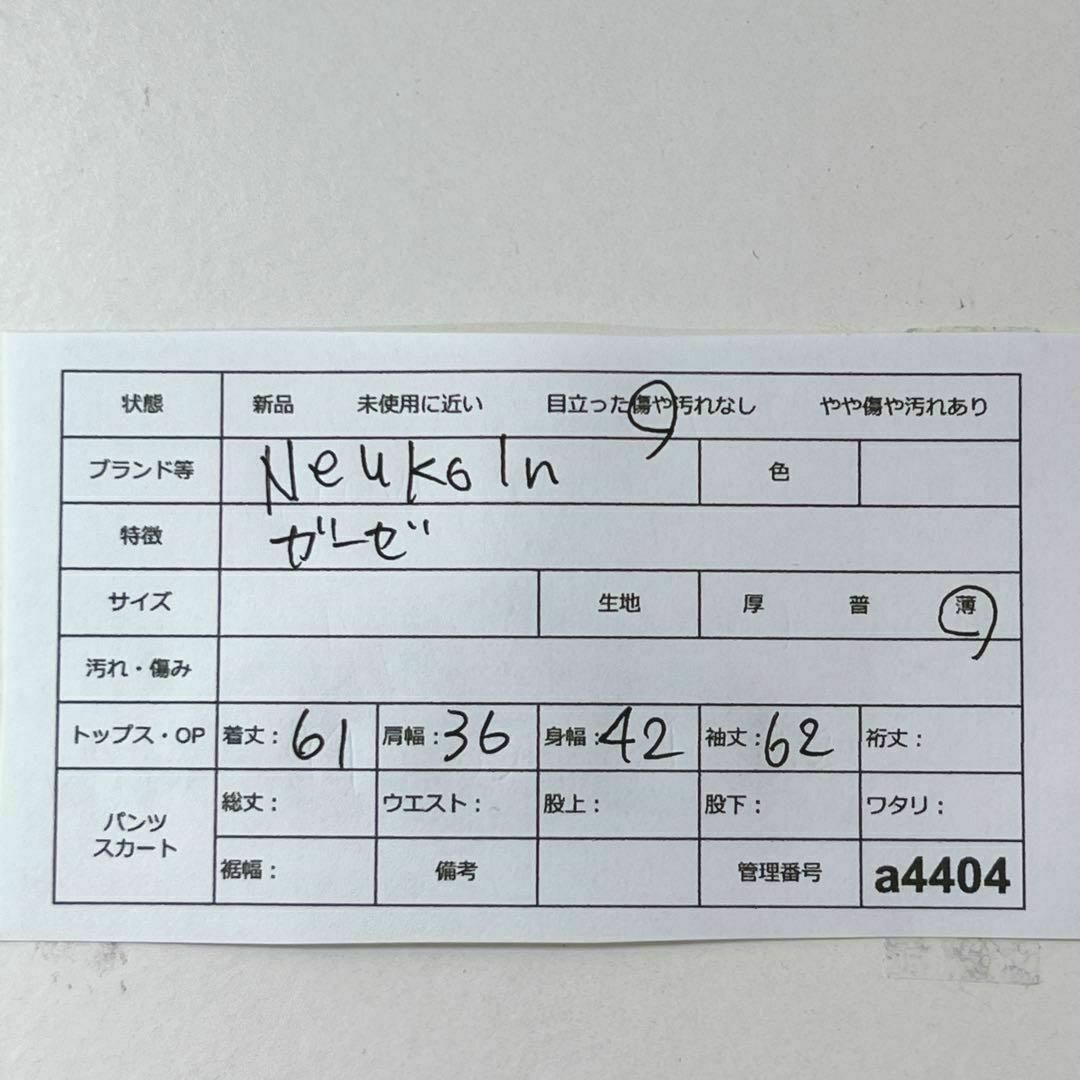 状態 新品 未使用に近い 目立った傷や汚れなし やや傷や汚れあり
ブランド等 Neukoln 色
特徴 ガーゼ
サイズ 生地 厚 普 薄
汚れ・傷み
トップス・OP 着丈：61 肩幅：36 身幅：42 袖丈：62 裄丈：
パンツ
スカート
総丈： ウエスト： 股上： 股下： ワタリ：
裾幅： 備考 管理番号 a4404